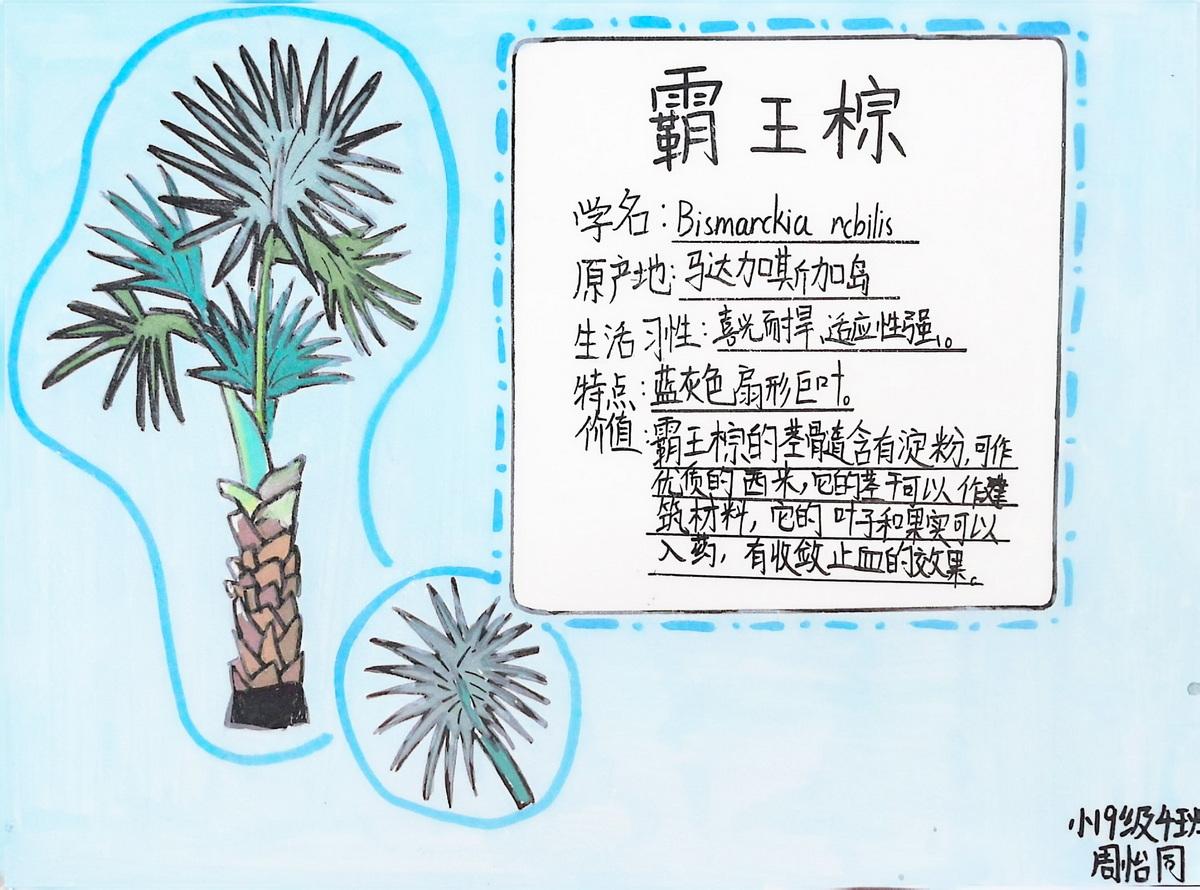 霸王棕
学名：Bismarckia nobilis
原产地：马达加斯加岛
生活习性：喜光而捍、适应性强。
特点：蓝灰色扇形巨叶。
价值：霸王棕的茎骨髓含有淀粉，可作
优质的西米，它的茎干可以作建
筑材料，它的叶子和果实可以
入药，有收敛止血的效果。
小19级4班
周怡同